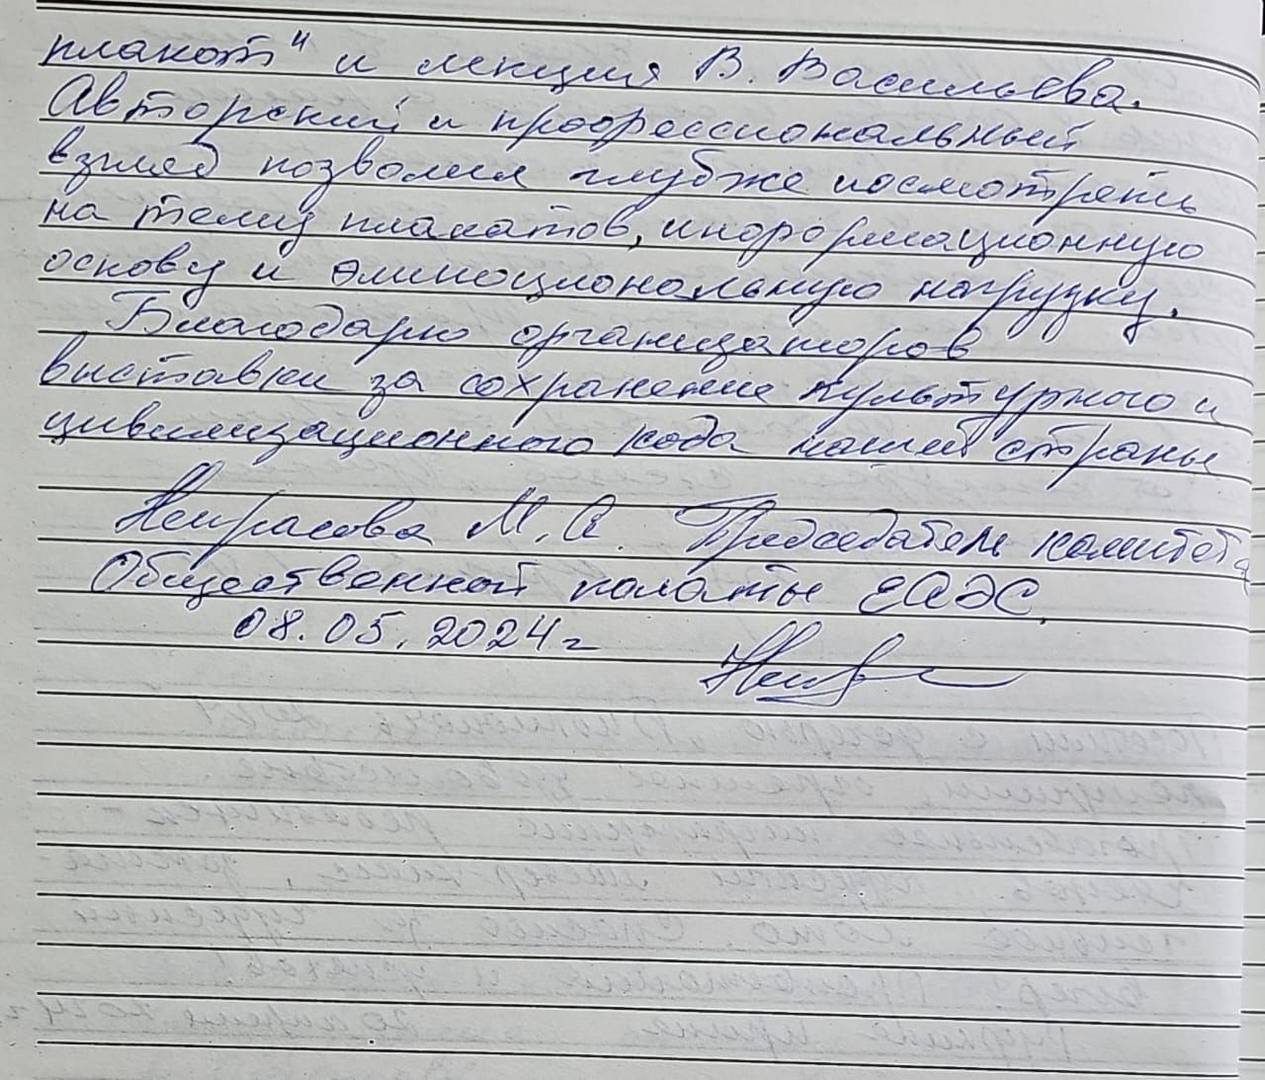 плакат" и лекция В. Васильева.
Авторский и профессиональный
взгляд позволил глубже посмотреть
на тему плакатов, информационную
основу и эмоциональную нагрузку.
Благодарю организаторов
выставки за сохранение культурного и
цивилизационного кода нашей страны
Некрасова М. А. Председатель комитета
Общественной палаты ЕАЭС.
08.05.2024 г